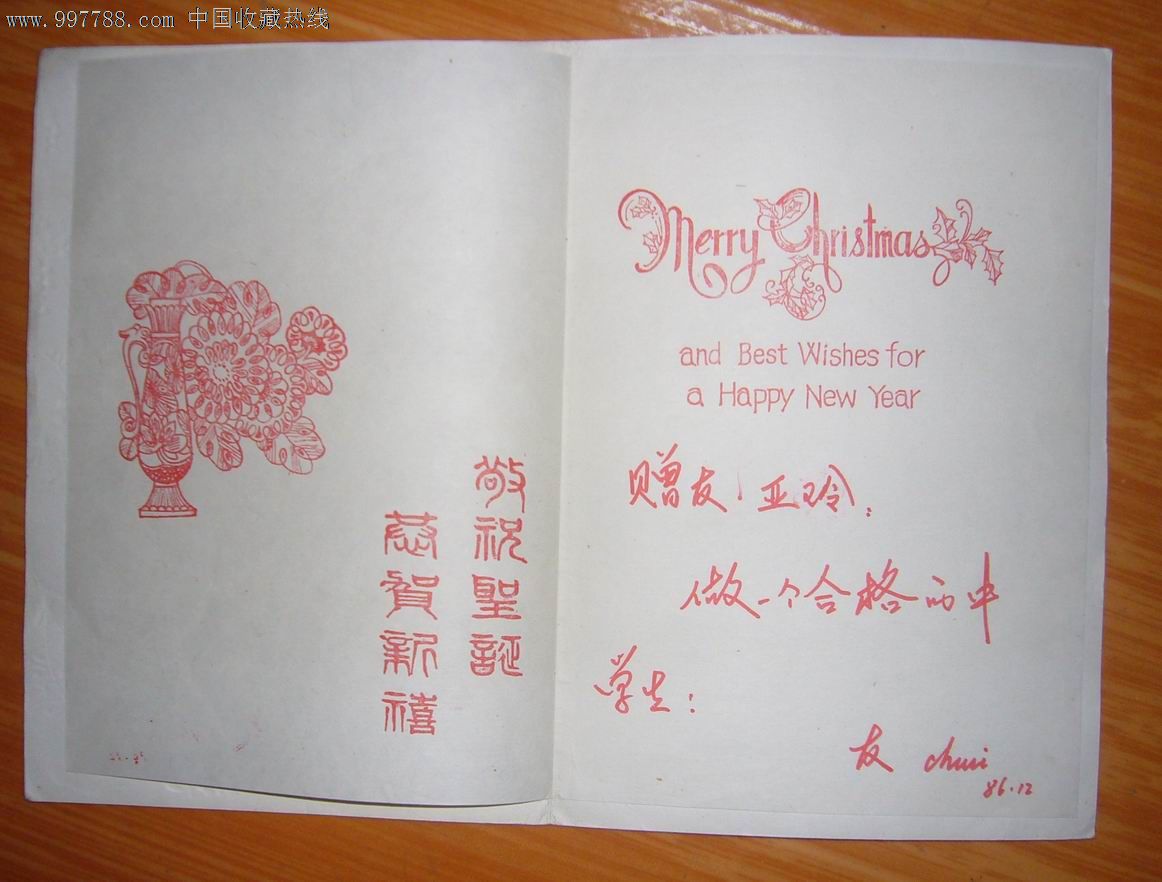 www.997788.com 中国收藏热线
敬祝聖誕
恭賀新禧
Merry Christmas
and Best Wishes for
a Happy New Year
赠友亚玲:
做一个合格的中
学生:
友
86.12